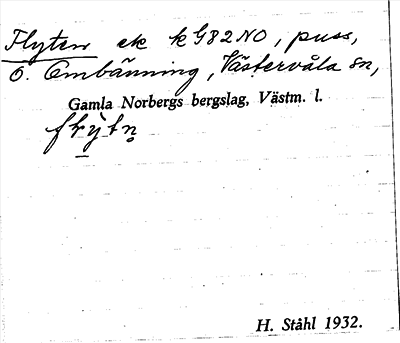 Flyten ek k G82NO, puss,
Ö. Ombänning, Västervåla sn,
Gamla Norbergs bergslag, Västm. l.
H. Ståhl 1932.